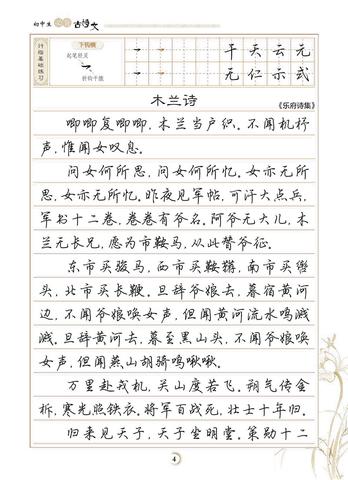 初中生必背古诗文
计指基础练习
下钩横
起笔轻灵
折钩干脆
干天云元
无仁示式
木兰诗
《乐府诗集》
唧唧复唧唧，木兰当户织。不闻机杼
声，惟闻女叹息。
问女何所思，问女何所忆。女亦无所
思，女亦无所忆。昨夜见军帖，可汗大点兵，
军书十二卷，卷卷有爷名。阿爷无大儿，木
兰无长兄，愿为市鞍马，从此替爷征。
东市买骏马，西市买鞍鞯，南市买辔
头，北市买长鞭。旦辞爷娘去，暮宿黄河
边，不闻爷娘唤女声，但闻黄河流水鸣溅
溅。旦辞黄河去，暮至黑山头，不闻爷娘唤
女声，但闻燕山胡骑鸣啾啾。
万里赴戎机，关山度若飞。朔气传金
柝，寒光照铁衣。将军百战死，壮士十年归。
归来见天子，天子坐明堂。策勋十二
4